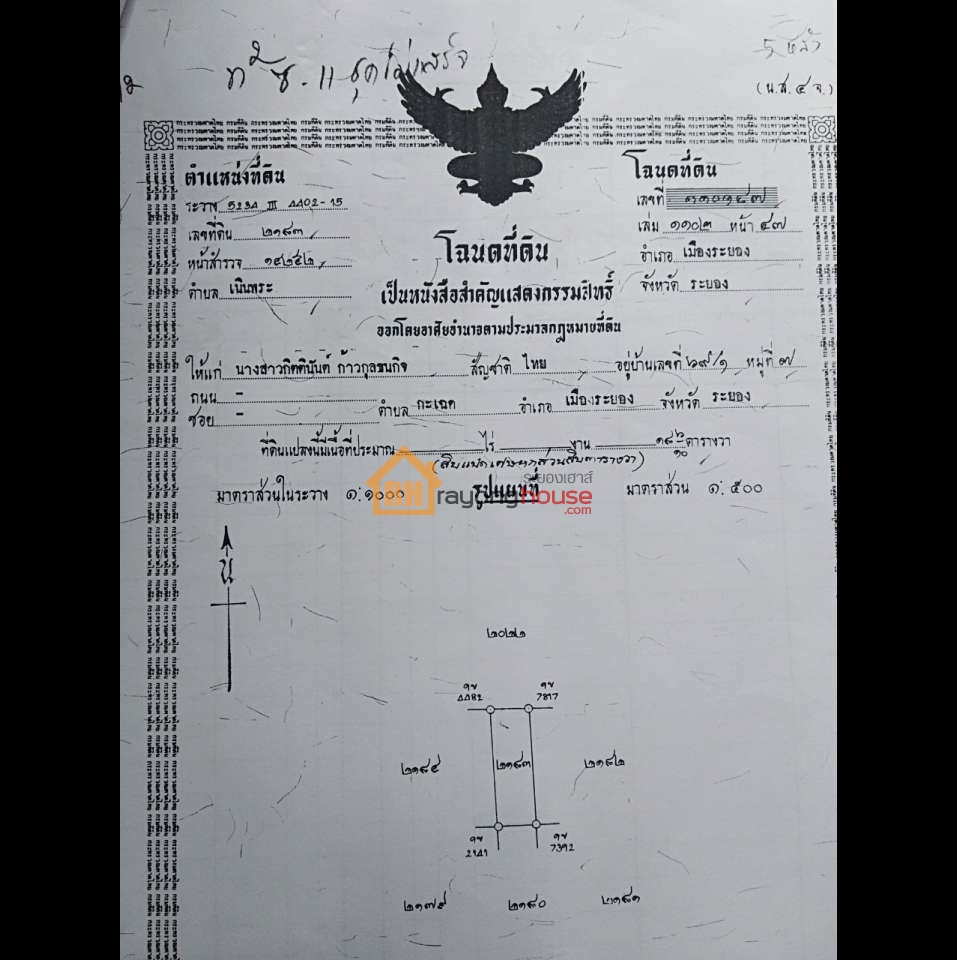 (น.ส. ๔ จ.)
ตำแหน่งที่ดิน
ระวาง 5234 III 4402-15
เลขที่ดิน ๒๑๘๓
หน้าสำรวจ ๑๔๒๕๒
ตำบล เนินพระ
โฉนดที่ดิน
เลขที่ ๑๑๐๑๔๗
เล่ม ๑๑๐๒ หน้า ๔๗
อำเภอ เมืองระยอง
จังหวัด ระยอง
โฉนดที่ดิน
เป็นหนังสือสำคัญแสดงกรรมสิทธิ์
ออกโดยอาศัยอำนาจตามประมวลกฎหมายที่ดิน
ให้แก่ นางสาวกิตตินันต์ ก้าวกุลธนกิจ สัญชาติ ไทย อยู่บ้านเลขที่ ๖๙/๑ หมู่ที่ ๗
ถนน -
ซอย - ตำบล กะเฉด อำเภอ เมืองระยอง จังหวัด ระยอง
ที่ดินแปลงนี้มีเนื้อที่ประมาณ ไร่ งาน ๑๘ ๖/๑๐ ตารางวา
(สิบแปดเศษหกส่วนสิบตารางวา)
ระยองเฮาส์
rayonghouse
.com
มาตราส่วนในระวาง ๑:๑๐๐๐ รูปแผนที่ มาตราส่วน ๑:๕๐๐
น
๒๐๗๑
4482 7817
๒๑๘๔ ๒๑๘๓ ๒๑๘๒
2141 7392
๒๑๗๙ ๒๑๘๐ ๒๑๘๑